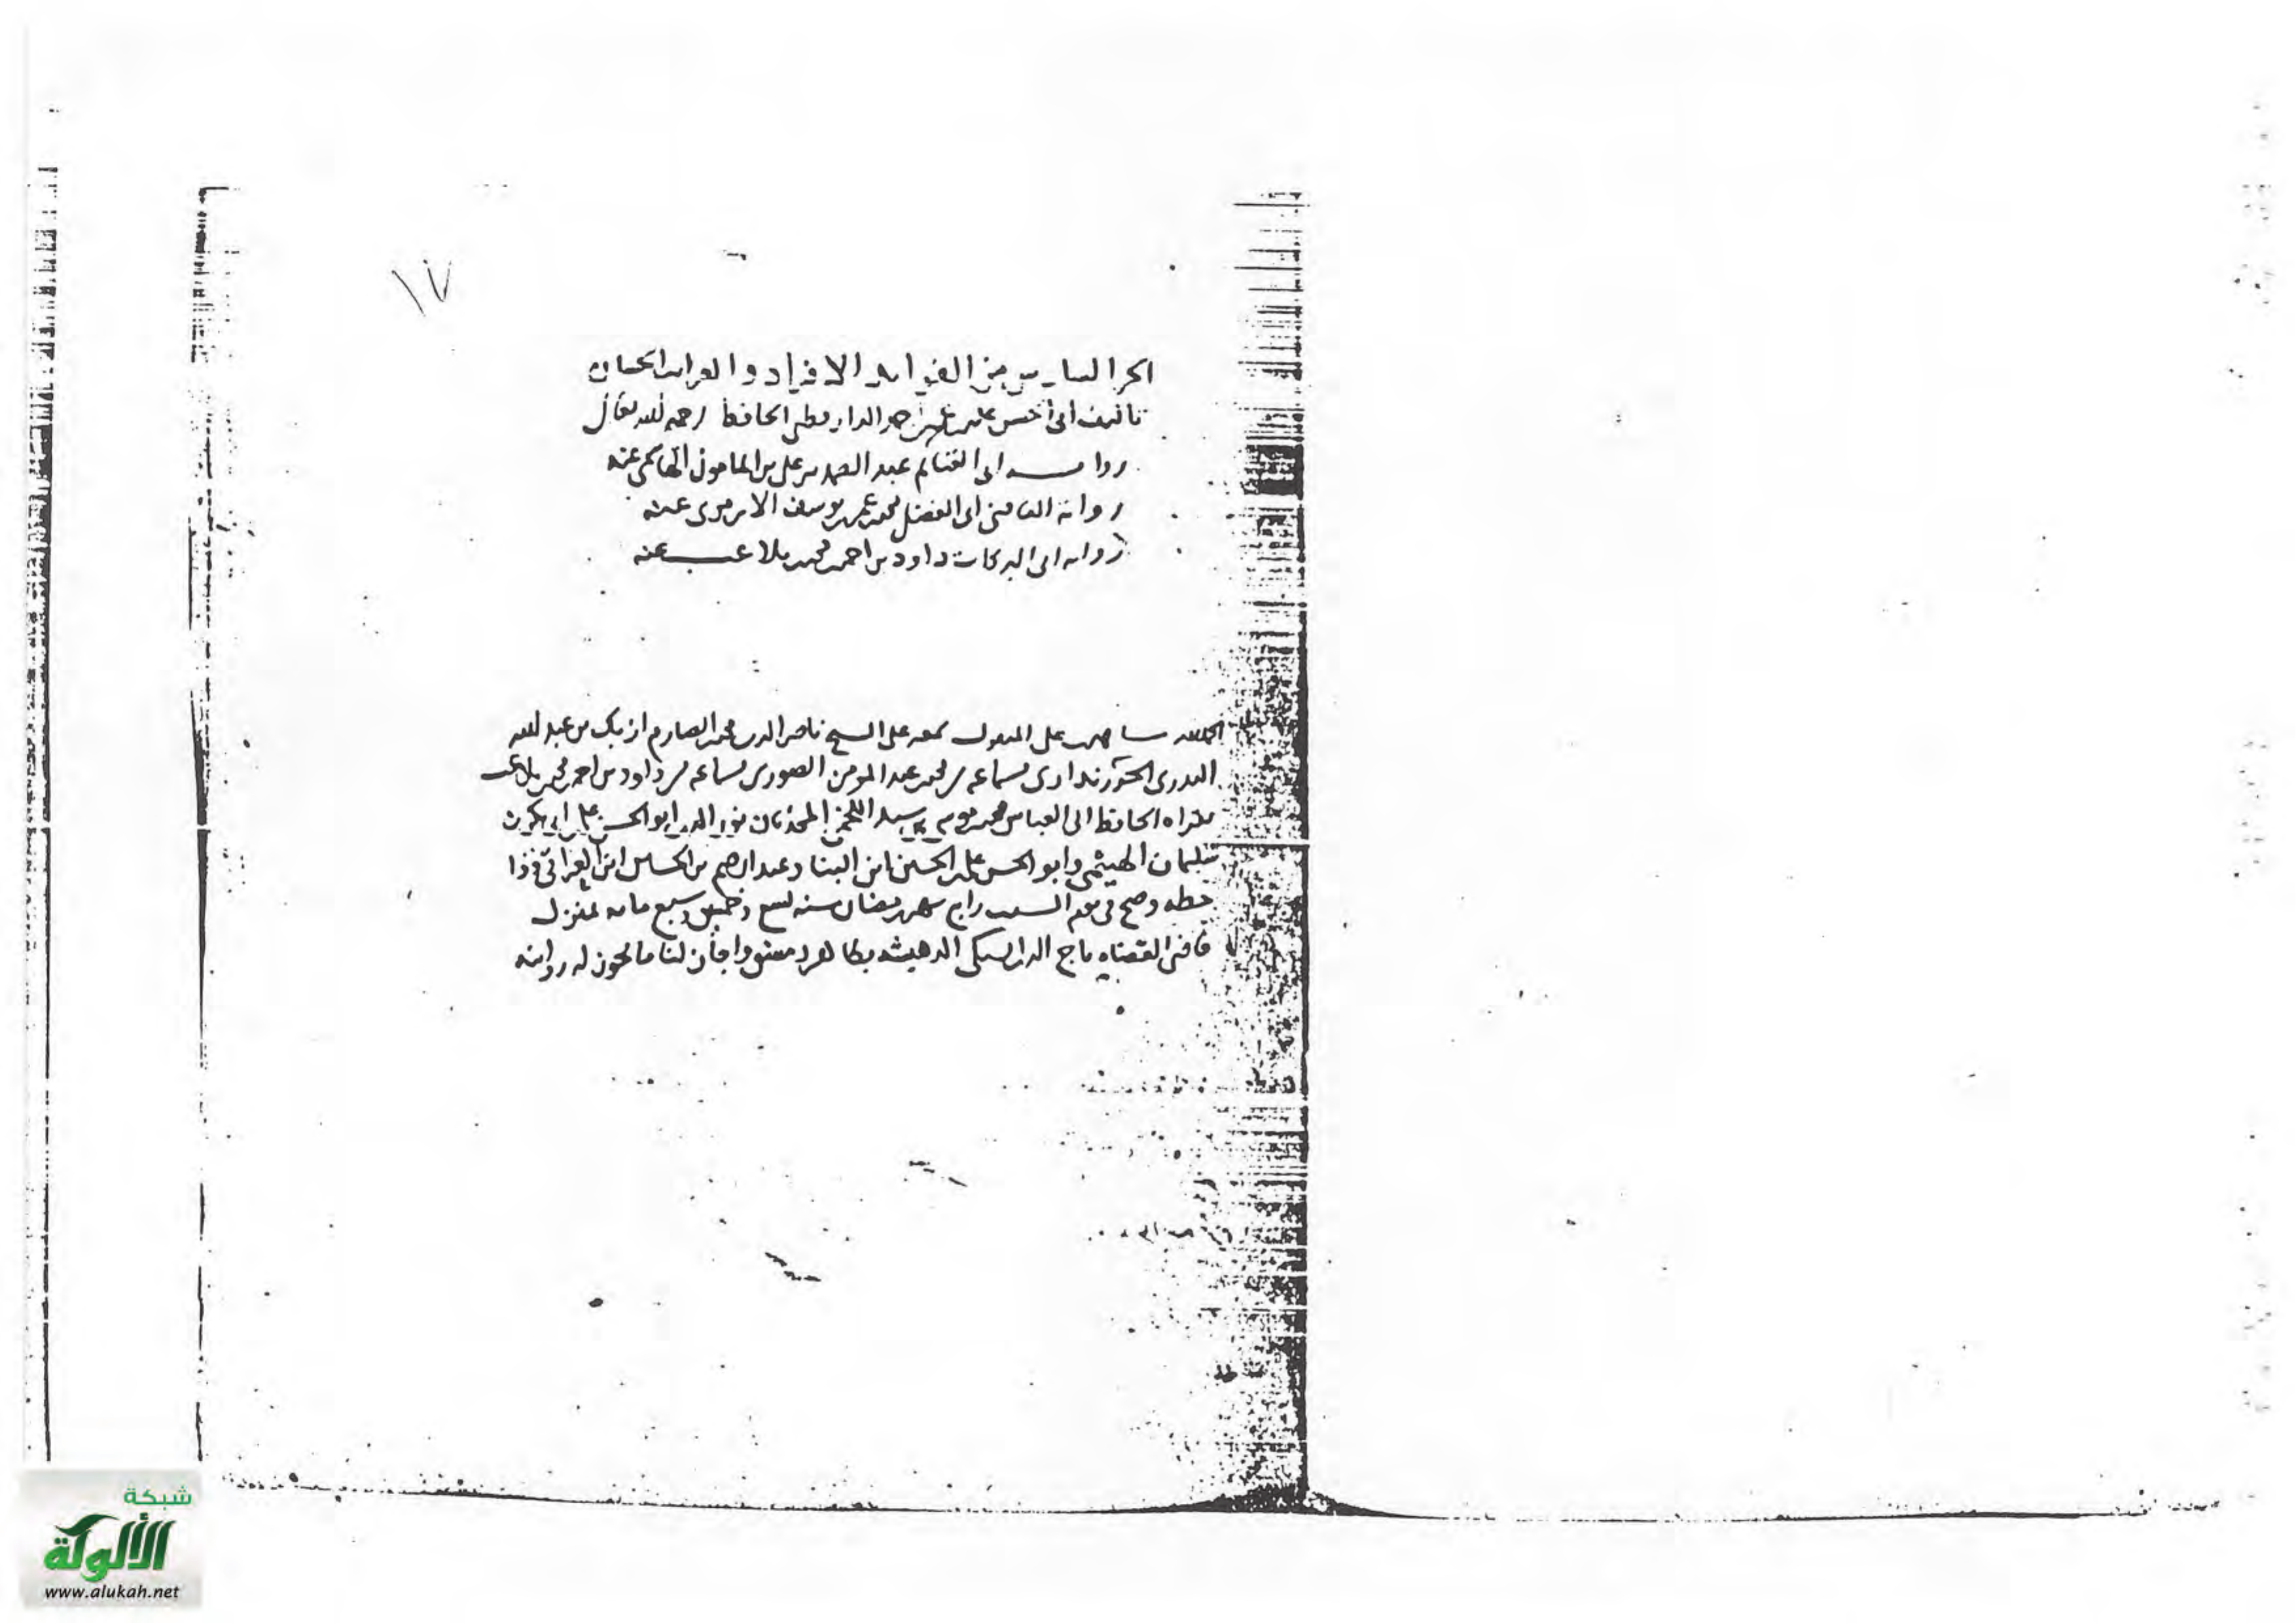 ١٧
الجزء السادس من الفوائد الافراد والغرائب الحسان
تأليف أبي الحسن علي بن عمر بن احمد الدارقطني الحافظ رحمه الله تعالى
رواية ابي الغنائم عبد الصمد بن علي بن المامون الهاشمي عنه
رواية القاضي ابي الفضل محمد بن عمر بن يوسف الارموي عنه
رواية ابي البركات داود بن احمد بن محمد بن ملاعب عنه
الحمد لله على جميعه على الشيخ ناصر الدين محمد بن الصارم ازبك بن عبد الله
البدري الخزنداري بسماعه من محمد بن عبد المومن الصوري بسماعه من داود بن احمد بن محمد بن ملاعب
بقراءة الحافظ ابي العباس محمد بن موسى بن سند اللخمي المحدثان نور الدين ابو الحسن علي بن ابي بكر بن
سليمان الهيثمي وابو الحسن علي بن الحسين بن البنا وعبد الرحيم بن الحسين ابن العراقي وذا
خطه وصح في يوم السبت رابع شهر رمضان سنه تسع وخمسين وسبع مايه بمنزل
قاضي القضاه تاج الدين السبكي الدهيشه بظاهر دمشق واجاز لنا ما يجوز له روايته
شبكة
الألوكة
www.alukah.net